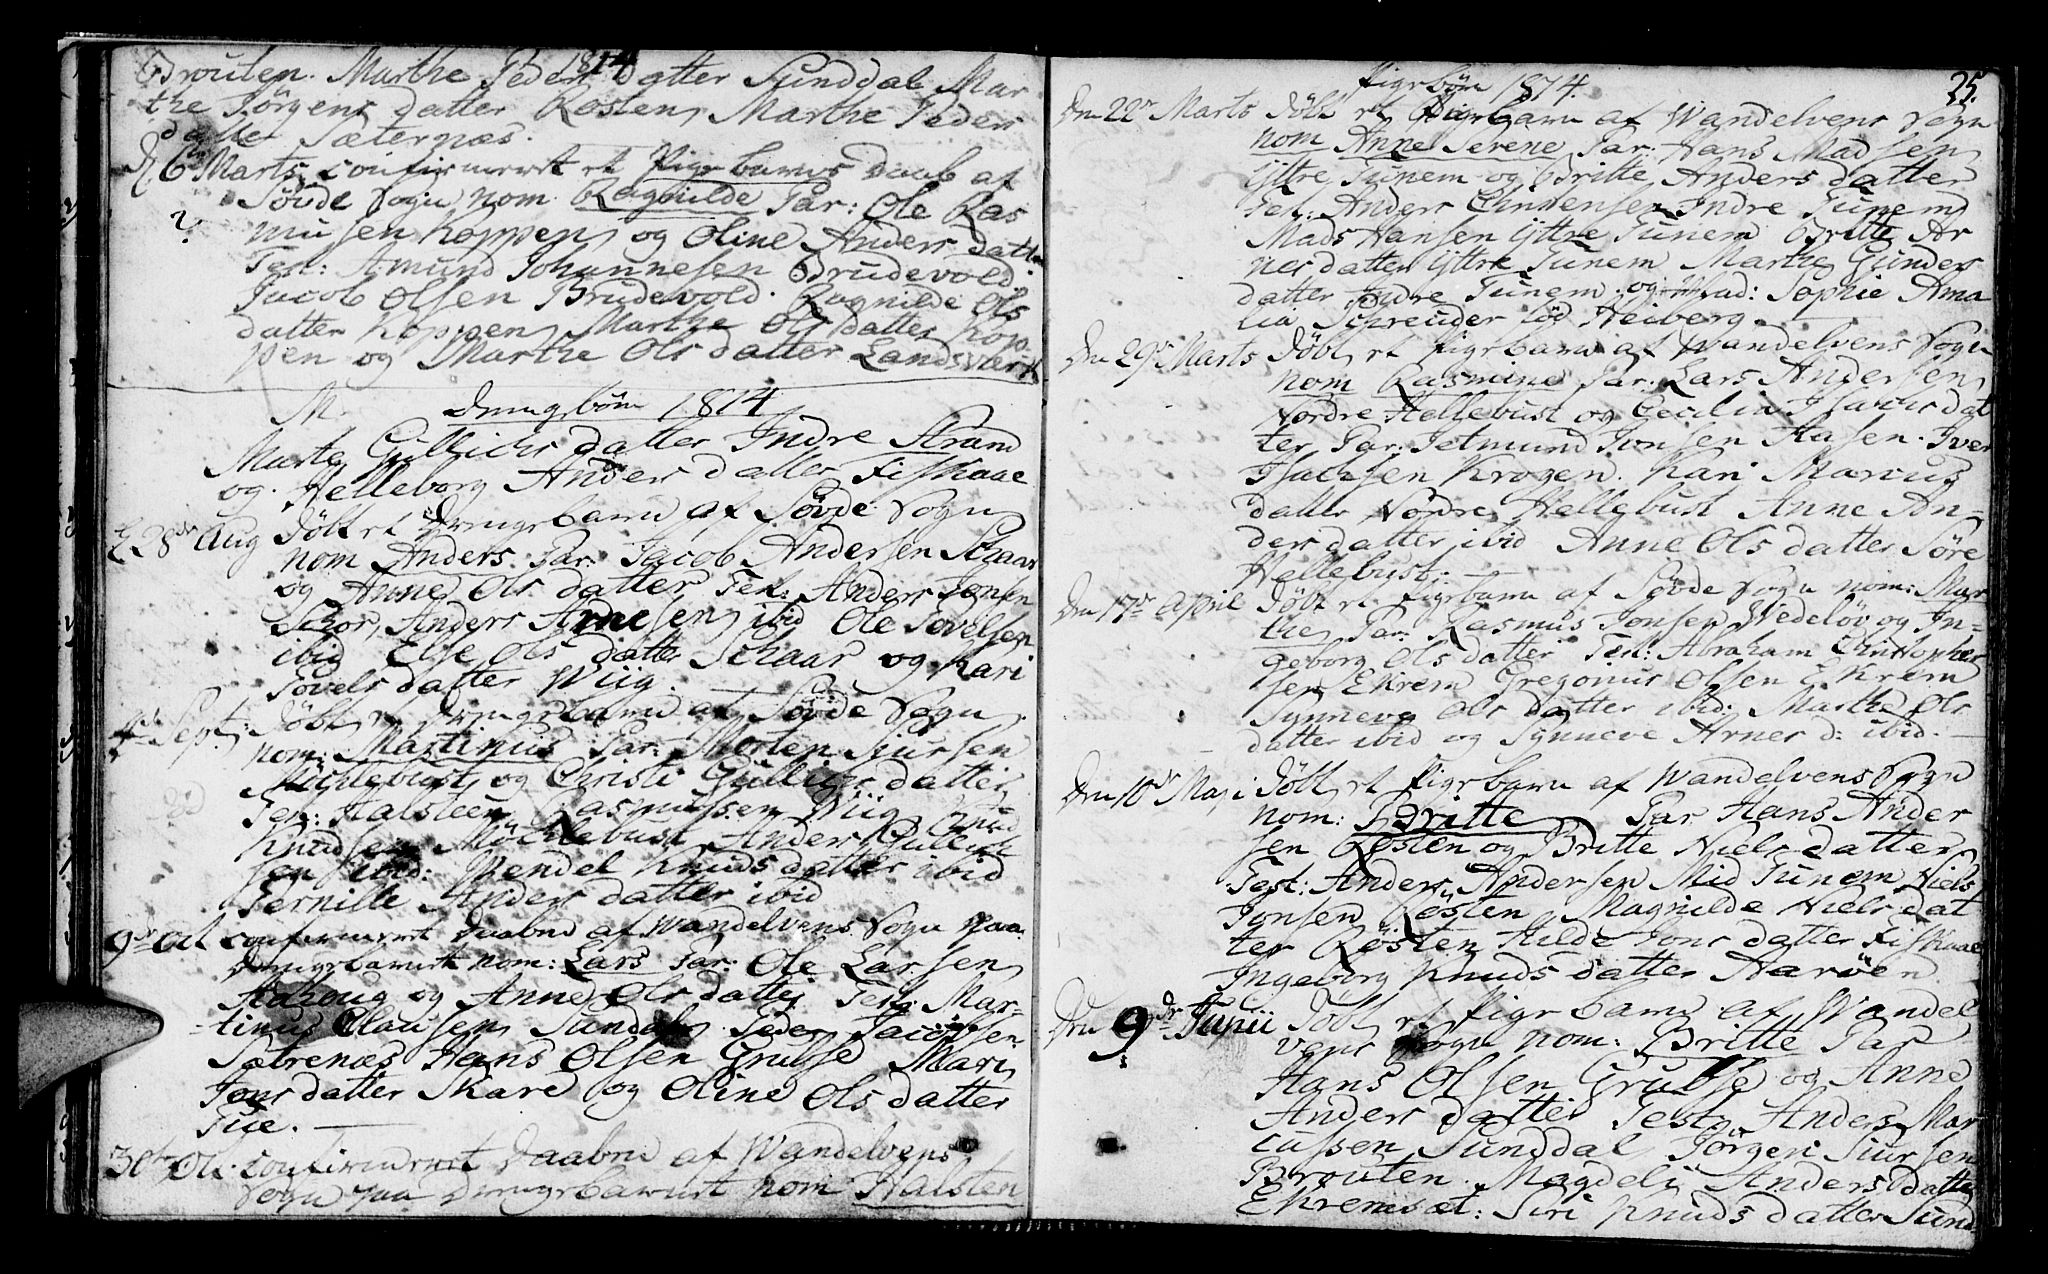 1814
Brouten. Marthe Peders datter Sunddal Mar
the Jörgens datter Rösten Marthe Peders
datter Sæternæs.
D. 6 Marts confirmeret et Pigebarns Daab af
Sövde Sogn nom. Ragnilde Par: Ole Ras
musen Koppen og Oline Anders datter
Test: Amund Johannesen Brudevold.
Jacob Olsen Brudevold. Ragnilde Ols
datter Koppen Marthe Ols datter Kop
pen og Marthe Ols datter Landsværk
M. Drengebörn 1814
Marte Gullichs datter Indre Strand
og Helleborg Anders datter Fiskaae
D. 28de Aug Döbt et Drengebarn af Sövde Sogn
nom Anders. Par: Jacob Andersen Schaar
og Anne Ols datter Test: Anders Jonsen
Schor, Anders Arnesen ibid Ole Sövelsen
ibid Else Ols datter Schaar og Kari
Sövels datter Wiig.
4de Sept: Döbt et Drengebarn af Sövde Sogn
nom: Martinus Par: Morten Siursen
Michlebust og Christi Gullichs datter
Test: Halsteen Rasmussen Wiig Knud
Knudsen Möchlebust Anders Gullich
sen ibid: Pendel Knuds datter ibid
Pernille Anders datter ibid
9de Oct confirmeret Daaben af Wandelvens Sogn paa
Drengebarnet nom: Lars Par: Ole Larsen
og Anne Ols datter Test: Mar-
tinus Clausen Sundal Peder Jacobsen
Sætrenæs Hans Olsen Grubse Mari
Jons datter Skare og Oline Ols datter
Tue.
30te Oct. confirmeret Daaben af Wandelvens
Sogn paa Drengebarnet nom Halsten
Pigebörn 1814.
25.
Den 22de Marts Döbt et Pigebarn af Wandelvens Sogn
nom Anne Serene Par: Hans Madsen
Yttre Tunem og Britte Anders datter
Test: Anders Christensen Indre Tunem
Mads Hansen Yttre Tunem Britte Ar
nes datter Yttre Tunem Marthe Gunders
datter Indre Tunem og Mad: Sophie Ama
lia Schreuder föd Heiberg.
Den 29de Marts Döbt et Pigebarn af Wandelvens Sogn
nom Rasmine Par: Lars Andersen
Nordre Hellebust og Cecilia Isachs dat
ter Par: Jetmund Jonsen Aasen. Iver
Isacsen Krogen. Kari Marcus
datter Nordre Hellebust Anne An-
ders datter ibid Anne Ols datter Söre
Hellebust.
Den 17de April Döbt et Pigebarn af Sövde Sogn nom: Mar
the Par: Rasmus Jonsen Wedelöv og In-
geborg Ols datter Test: Abraham Christopher
sen Ekrem Gregorius Olsen Ekrem
Synneve Ols datter ibid. Marthe Ols
datter ibid og Synneve Arnes d: ibid.
Den 10de Maji Döbt et Pigebarn af Wandelvens Sogn
nom: Britte Par Hans Ander
sen Rösten og Britte Niels datter
Test: Anders Andersen Mid Tunem Niels
Jonsen Rösten Magnilde Niels dat
ter Rösten Hilde Jons datter Fiskaae
Ingeborg Knuds datter Haröen
Den 9de Junii Döbt et Pigebarn af Wandel
vens Sogn nom: Britte Par
Hans Olsen Grubse og Anne
Anders datter Test. Anders Mar
cussen Sunddal Jörgen Siursen
Brouten. Magdeli Anders datter
Ekremsæt: Siri Knuds datter Sund